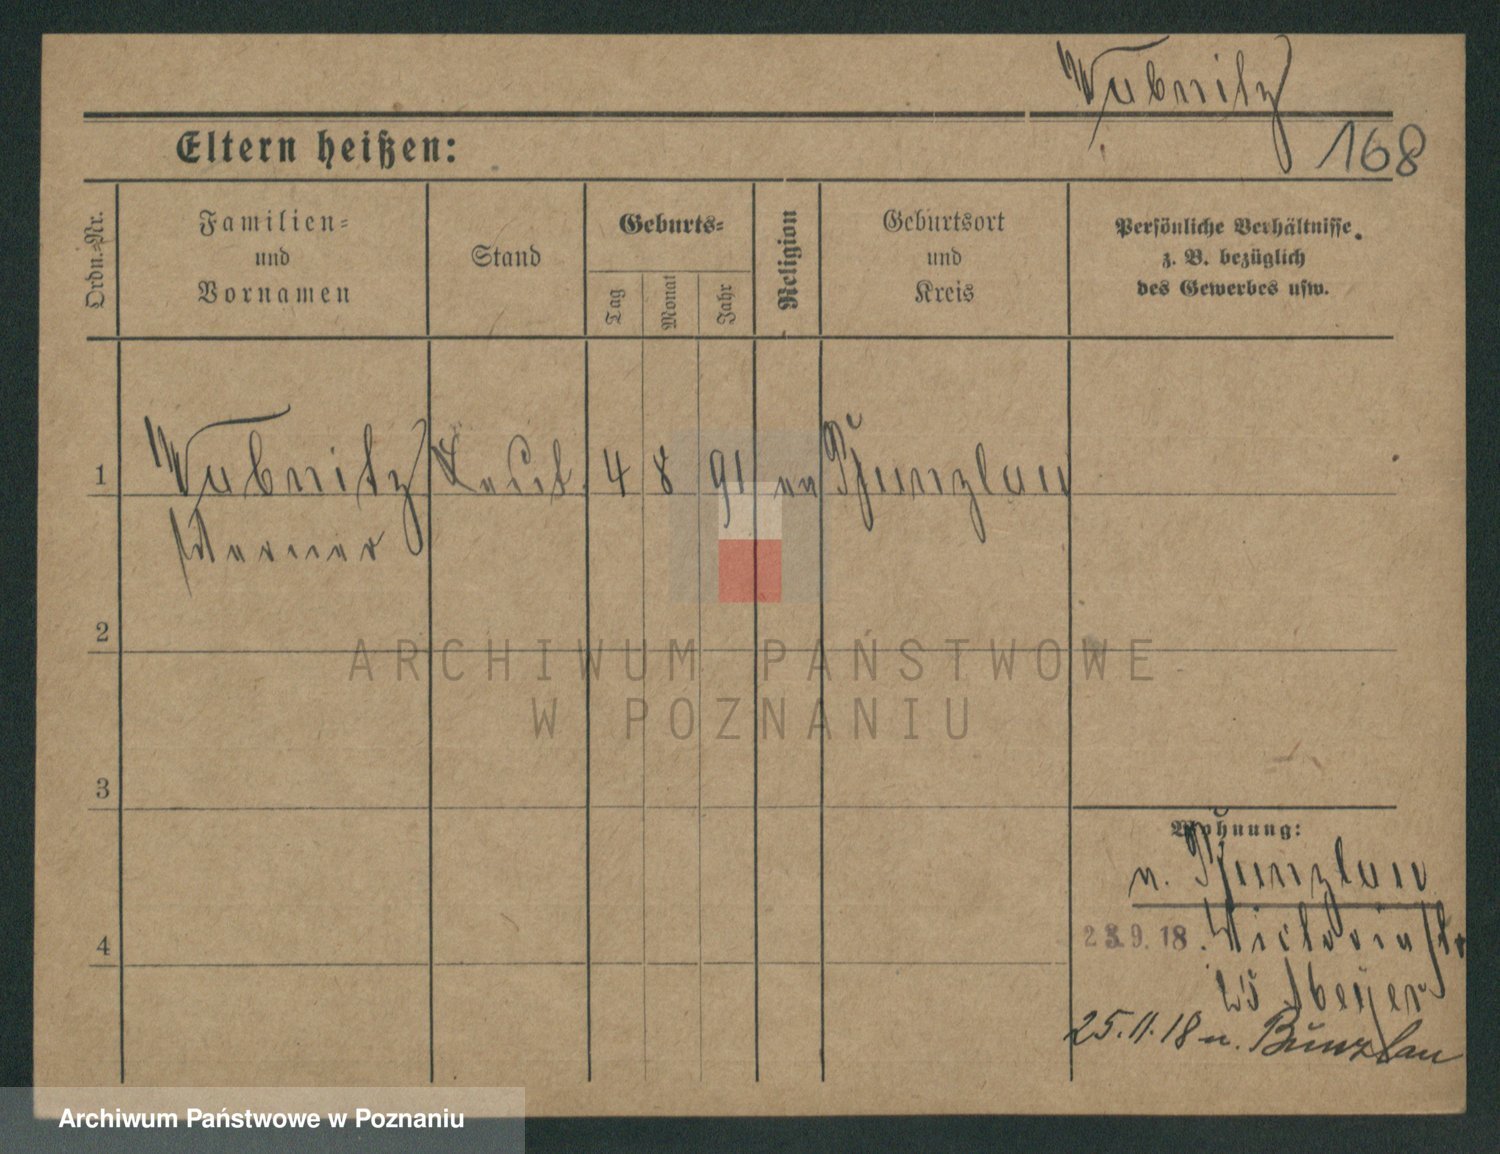 Wabnitz
168
Eltern heißen:
Ordn.-Nr.
Familien-
und
Vornamen
Stand
Geburts-
Tag
Monat
Jahr
Religion
Geburtsort
und
Kreis
Persönliche Verhältnisse
z. B. bezüglich
des Gewerbes usw.
1 Wabnitz 4 8 91 ev Bunzlau
Werner
2
3
4
Wohnung:
n. Bunzlau
23.9.18. Victoriastr
25.11.18 n. Bunzlau
ARCHIWUM PAŃSTWOWE
W POZNANIU
Archiwum Państwowe w Poznaniu